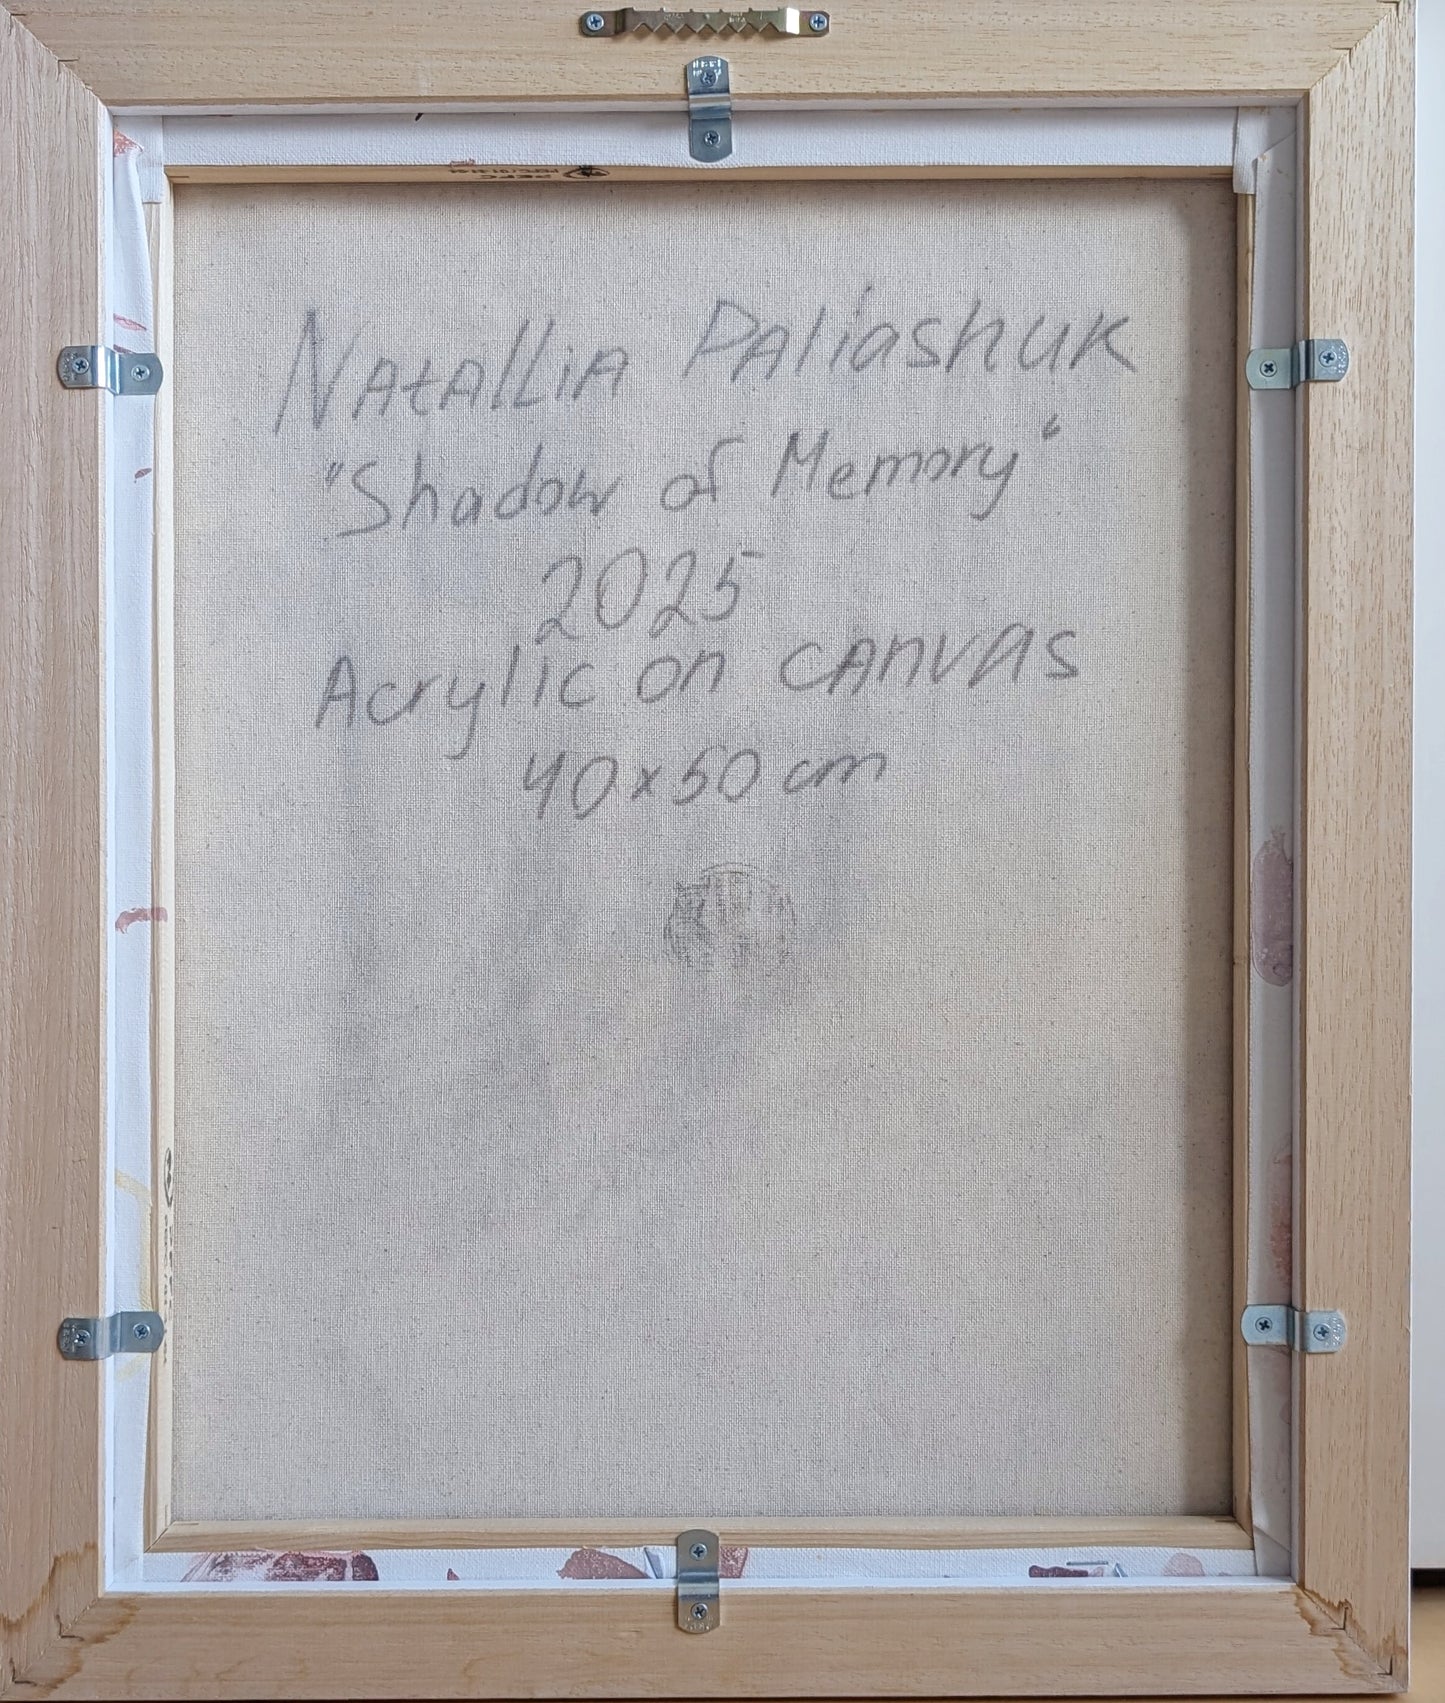 NAtALLiA PALiashuk
"Shadow of Memory"
2025
Acrylic on CANVAS
40x50 cm
PEFC